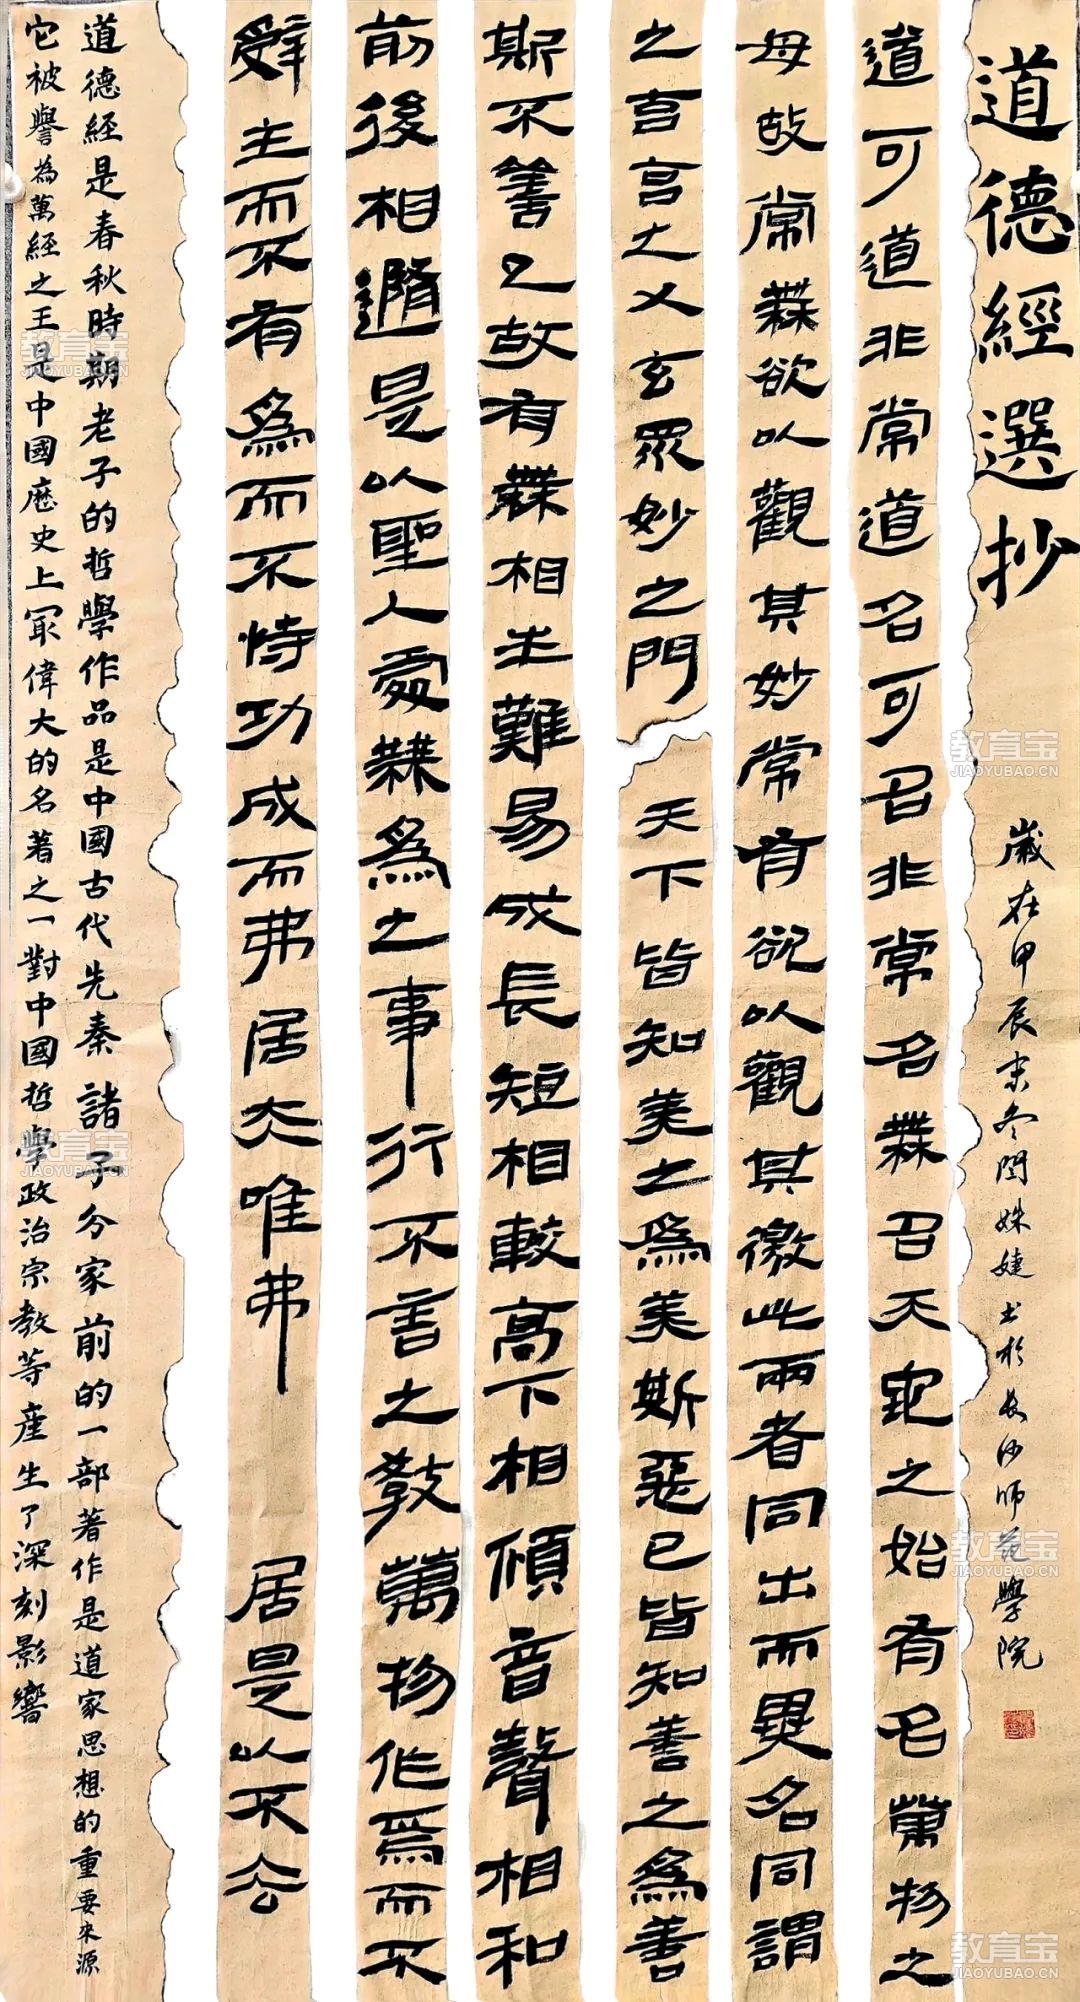 道德經選抄
歲在甲辰末冬閆姝婕书於長沙师范學院
道可道非常道名可名非常名無名天地之始有名萬物之
母故常無欲以觀其妙常有欲以觀其徼此兩者同出而異名同謂
之玄玄之又玄眾妙之門 天下皆知美之為美斯惡已皆知善之為善
斯不善已故有無相生難易成長短相較高下相傾音聲相和
前後相隨是以聖人處無為之事行不言之教萬物作焉而不
辭生而不有為而不恃功成而弗居夫唯弗 居是以不去
道德經是春秋時期老子的哲學作品是中國古代先秦諸子分家前的一部著作是道家思想的重要來源
它被譽為萬經之王是中國歷史上最偉大的名著之一對中國哲學政治宗教等產生了深刻影響
教育宝
JIAOYUBAO.CN
教育宝
JIAOYUBAO.CN
教育宝
JIAOYUBAO.CN
教育宝
JIAOYUBAO.CN
教育宝
JIAOYUBAO.CN